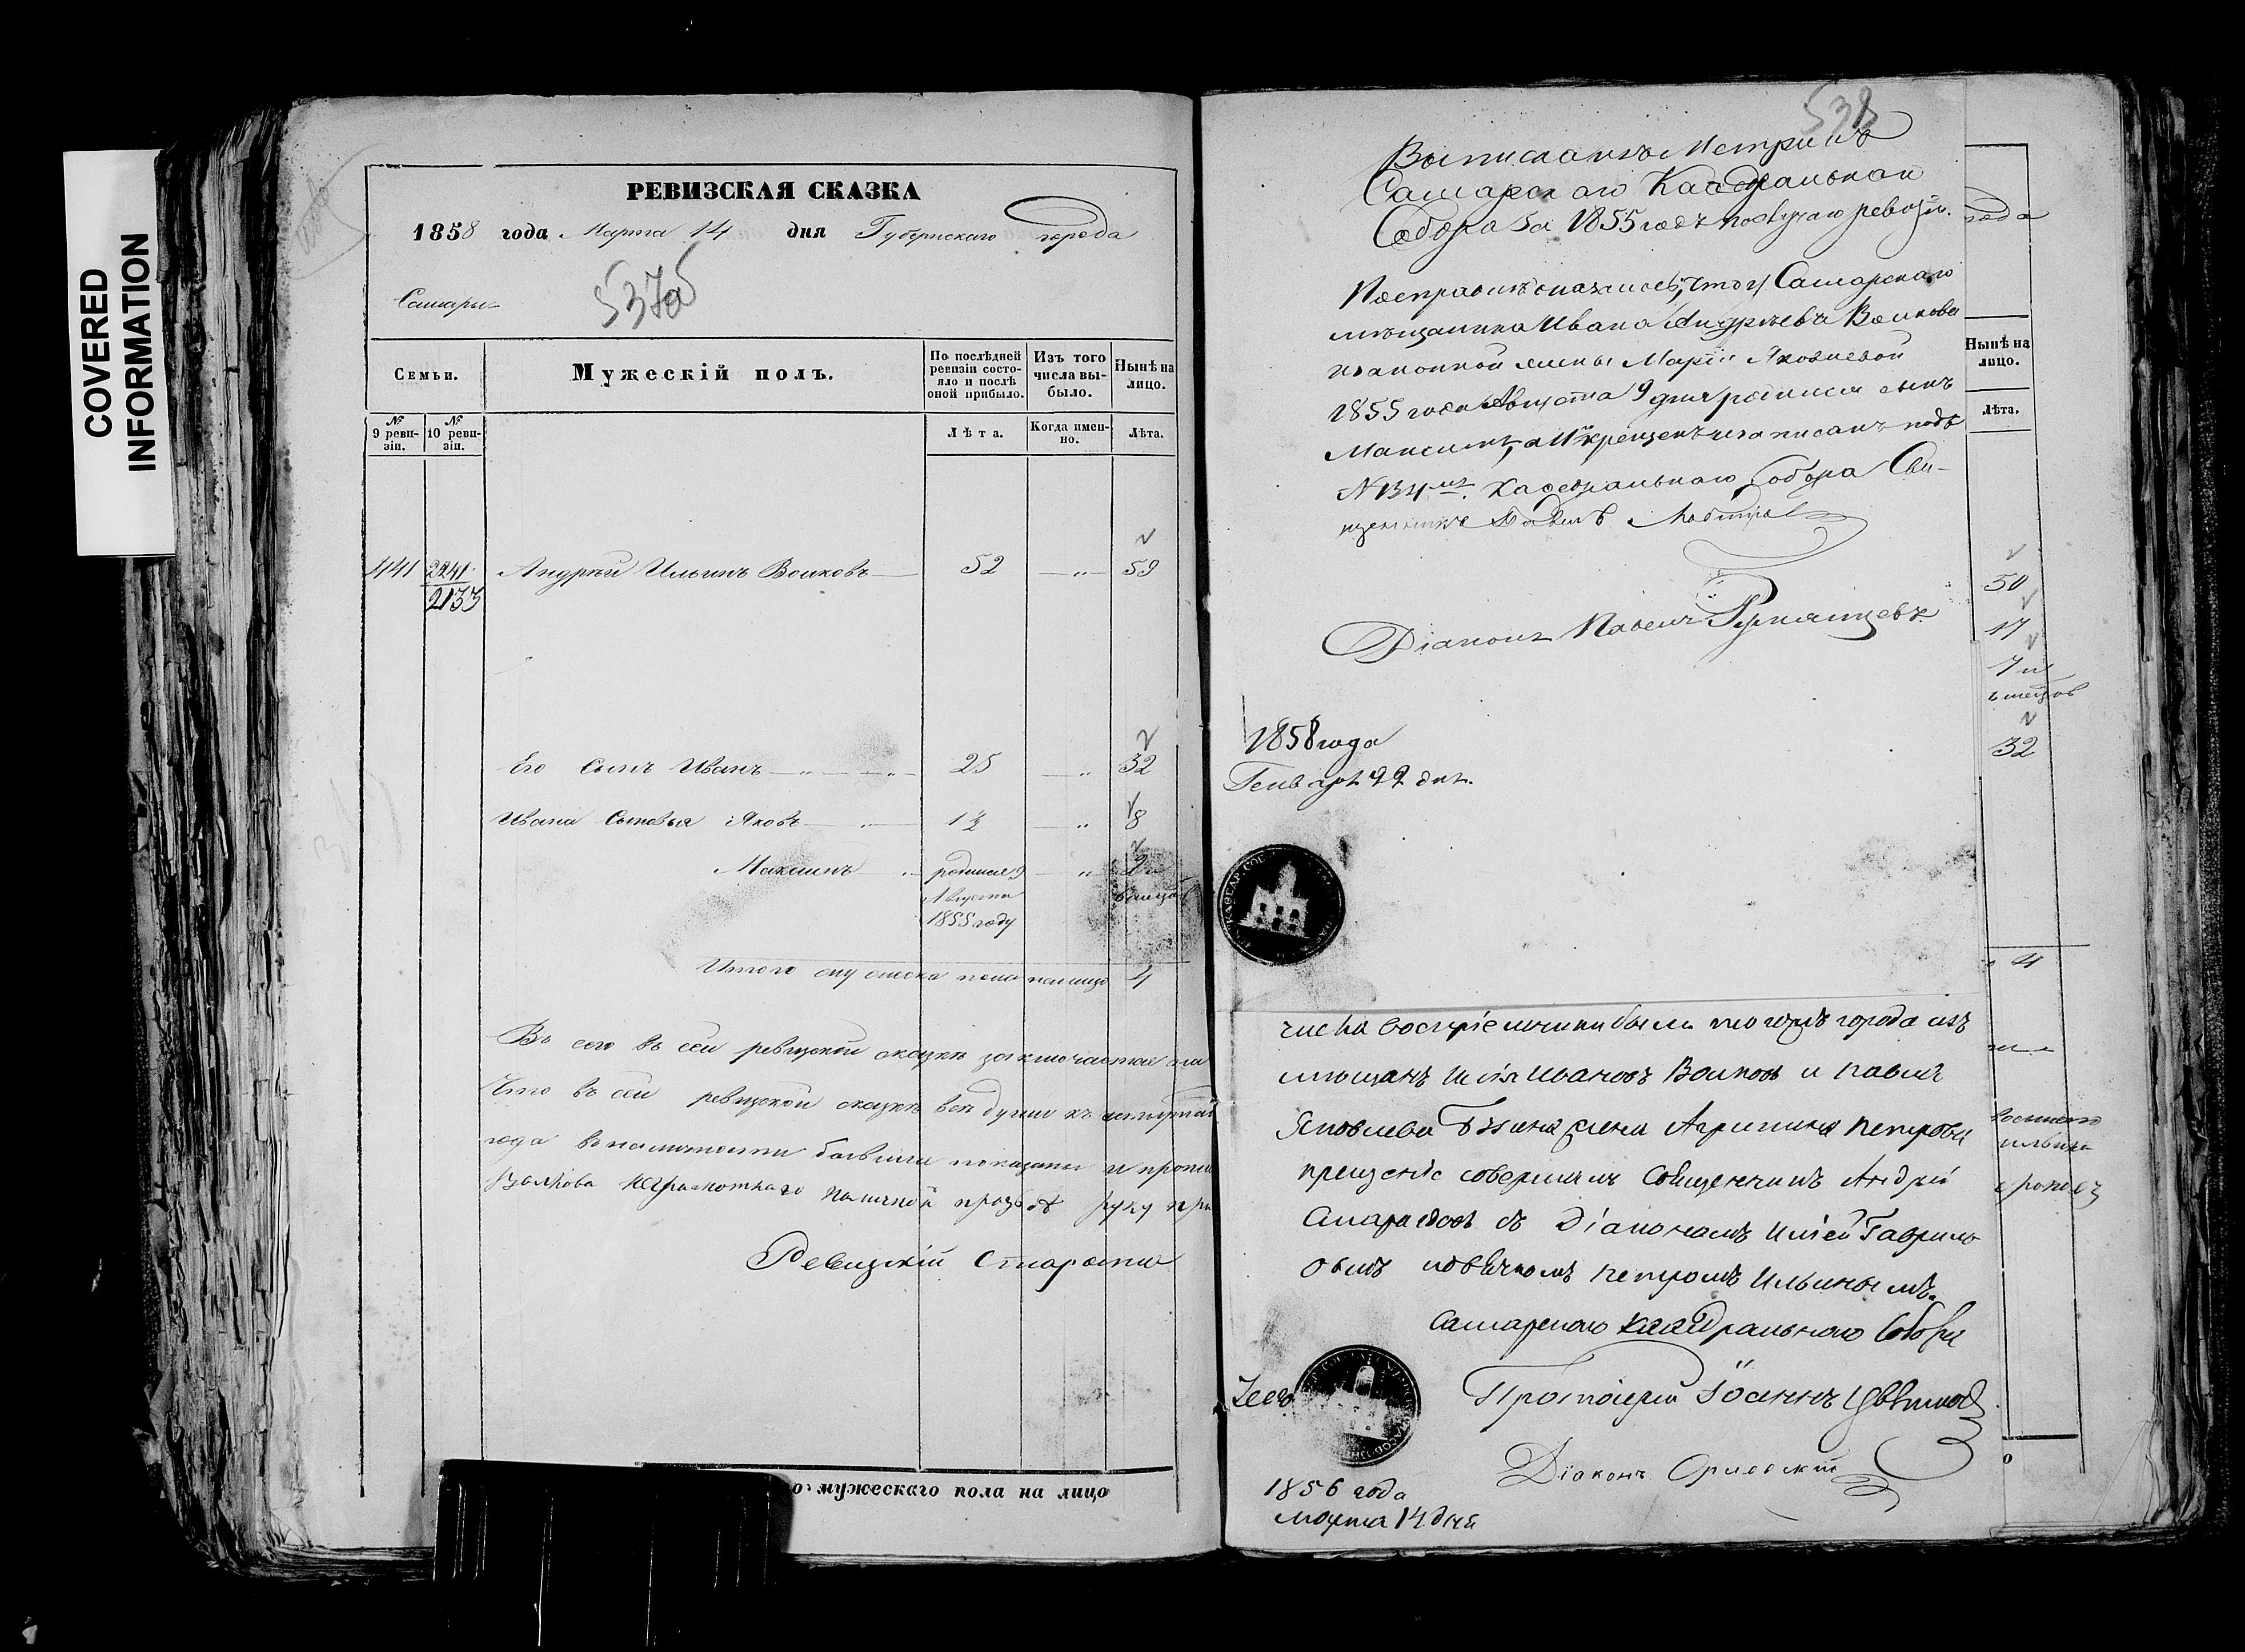 COVERED
INFORMATION
РЕВИЗСКАЯ СКАЗКА
1858 года Марта 14 дня Губернскаго города
Самары
537об
Семьи.
Мужескій полъ.
По послѣдней ревизіи состояло и послѣ оной прибыло.
Изъ того числа выбыло.
Нынѣ на лицо.
№ 9 ревизіи.
№ 10 ревизіи.
Лѣта.
Когда именно.
Лѣта.
441 2241 Андрей Ильинъ Волковъ 52 — " — 59
2133
Его Сынъ Иванъ 25 — " 32
Ивана Сыновья Яковъ 1½ — " 8
Максимъ родился 9 — " 2 и
Августа
1855 году
Итого мужеска пола налицо 4
въ сей ревизской сказкѣ заключается
Что въ сей ревизской сказкѣ всѣ души къ
года въ наличности бывшіе показаны и
Волкова неграмотнаго по личной прозбѣ руку
Ревизскій Староста
мужескаго пола на лицо
538
Выписка изъ Метрикъ
Самарскаго Каѳедральнаго
Собора за 1855 годъ по случаю ревизіи.
По справкѣ оказалось, что у Самарскаго
мѣщанина Ивана Андрѣева Волкова
и законной жены Маріи Яковлевой
1855 года Августа 9 дня родился сынъ
Максимъ, а 11 крещенъ и записанъ подъ
№ 134 мъ. Каѳедральнаго Собора Свя-
щенникъ
Діаконъ Павелъ Румянцевъ
1858 года
Генваря 22 дня.
числа воспріемники были тогожъ города изъ
мѣщанъ Илія Ивановъ Волковъ и Павла
Яковлева жена Агрипина Петрова
крещеніе совершилъ Священникъ Андрей
Смарагдовъ съ Діакономъ Иліей Гаврило
вымъ Петромъ Ильинымъ.
Самарскаго Каѳедральнаго Собора
Протоіерей Іоаннъ
Діаконъ Орловскій
1856 года
марта 14 дня
года
Нынѣ на лицо.
Лѣта.
50
17
7 и
32
4